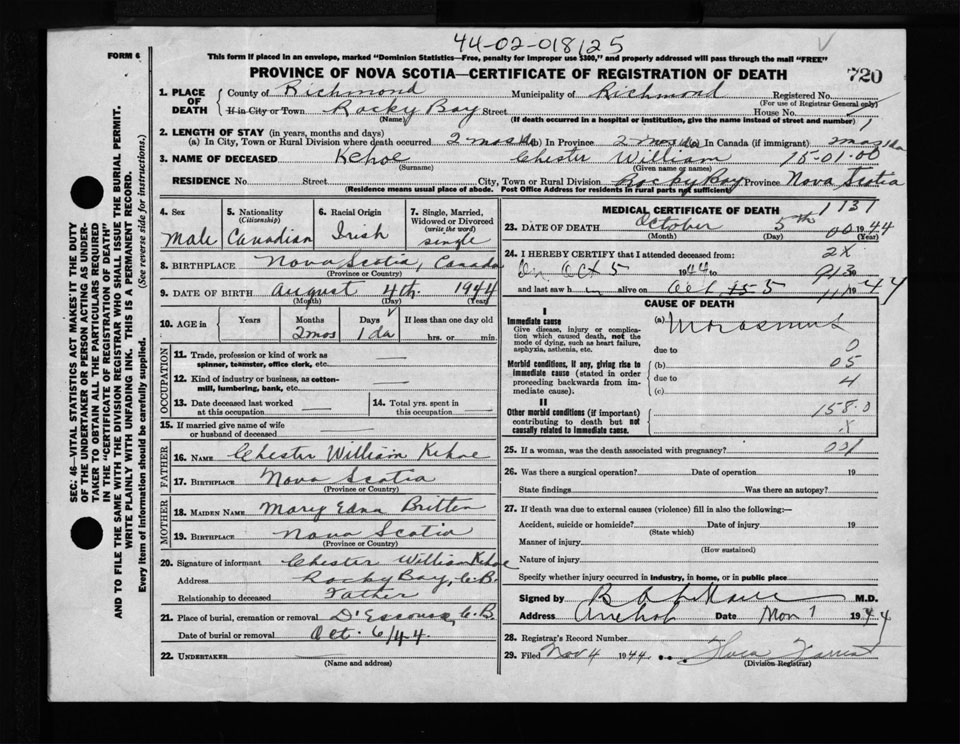 44-02-018125
FORM 6
This form if placed in an envelope, marked "Dominion Statistics—Free, penalty for improper use $300," and properly addressed will pass through the mail "FREE"
PROVINCE OF NOVA SCOTIA—CERTIFICATE OF REGISTRATION OF DEATH 720
SEC: 46—VITAL STATISTICS ACT MAKES IT THE DUTY
OF THE UNDERTAKER OR PERSON ACTING AS UNDER-
TAKER TO OBTAIN ALL THE PARTICULARS REQUIRED
IN THE "CERTIFICATE OF REGISTRATION OF DEATH"
AND TO FILE THE SAME WITH THE DIVISION REGISTRAR WHO SHALL ISSUE THE BURIAL PERMIT.
WRITE PLAINLY WITH UNFADING INK. THIS IS A PERMANENT RECORD.
Every item of information should be carefully supplied. (See reverse side for instructions.)
1. PLACE OF DEATH County of Richmond Municipality of Richmond Registered No.
(For use of Registrar General only)
If in City or Town Rocky Bay Street House No.
(Name) (If death occurred in a hospital or institution, give the name instead of street and number) 1
2. LENGTH OF STAY (in years, months and days)
(a) In City, Town or Rural Division where death occurred 2 mos 1da (b) In Province 2 mos 1da (c) In Canada (if immigrant)
3. NAME OF DECEASED Kehoe Chester William 15-01-00
(Surname) (Given name or names)
RESIDENCE No. Street City, Town or Rural Division Rocky Bay Province Nova Scotia
(Residence means usual place of abode. Post Office Address for residents in rural parts not sufficient)
4. Sex 5. Nationality (Citizenship) 6. Racial Origin 7. Single, Married, Widowed or Divorced (write the word)
Male Canadian Irish single
8. BIRTHPLACE Nova Scotia, Canada
(Province or Country)
9. DATE OF BIRTH August 4th. 1944
(Month) (Day) (Year)
10. AGE in Years Months Days If less than one day old
2mos 1 da hrs. or min.
OCCUPATION
11. Trade, profession or kind of work as
spinner, teamster, office clerk, etc. —
12. Kind of industry or business, as cotton-
mill, lumbering, bank, etc. —
13. Date deceased last worked at this occupation —
14. Total yrs. spent in this occupation —
15. If married give name of wife
or husband of deceased —
FATHER
16. NAME Chester William Kehoe
17. BIRTHPLACE Nova Scotia
(Province or Country)
MOTHER
18. MAIDEN NAME Mary Edna Britten
19. BIRTHPLACE Nova Scotia
(Province or Country)
20. Signature of informant Chester William Kehoe
Address Rocky Bay, C.B.
Relationship to deceased Father
21. Place of burial, cremation or removal D'Escousse, C.B.
Date of burial or removal Oct. 6/44
22. UNDERTAKER
(Name and address)
MEDICAL CERTIFICATE OF DEATH 1131
23. DATE OF DEATH October 5th 1944
(Month) (Day) (Year)
24. I HEREBY CERTIFY that I attended deceased from: 2X
On Oct 5 1944 to
and last saw h alive on Oct 5 1944
CAUSE OF DEATH
I
Immediate cause
Give disease, injury or complica-
tion which caused death, not the
mode of dying, such as heart failure,
asphyxia, asthenia, etc.
(a) Marasmus
due to 0
Morbid conditions, if any, giving rise to
immediate cause (stated in order
proceeding backwards from im-
mediate cause).
(b) 05
due to 4
(c)
II
Other morbid conditions (if important)
contributing to death but not
causally related to immediate cause.
158.0
X
25. If a woman, was the death associated with pregnancy?
26. Was there a surgical operation? Date of operation 19
State findings Was there an autopsy?
27. If death was due to external causes (violence) fill in also the following:—
Accident, suicide or homicide? Date of injury 19
(State which)
Manner of injury
(How sustained)
Nature of injury
Specify whether injury occurred in industry, in home, or in public place
Signed by M.D.
Address Arichat Date Nov 1 1944
28. Registrar's Record Number
29. Filed Nov 4 1944
(Division Registrar)